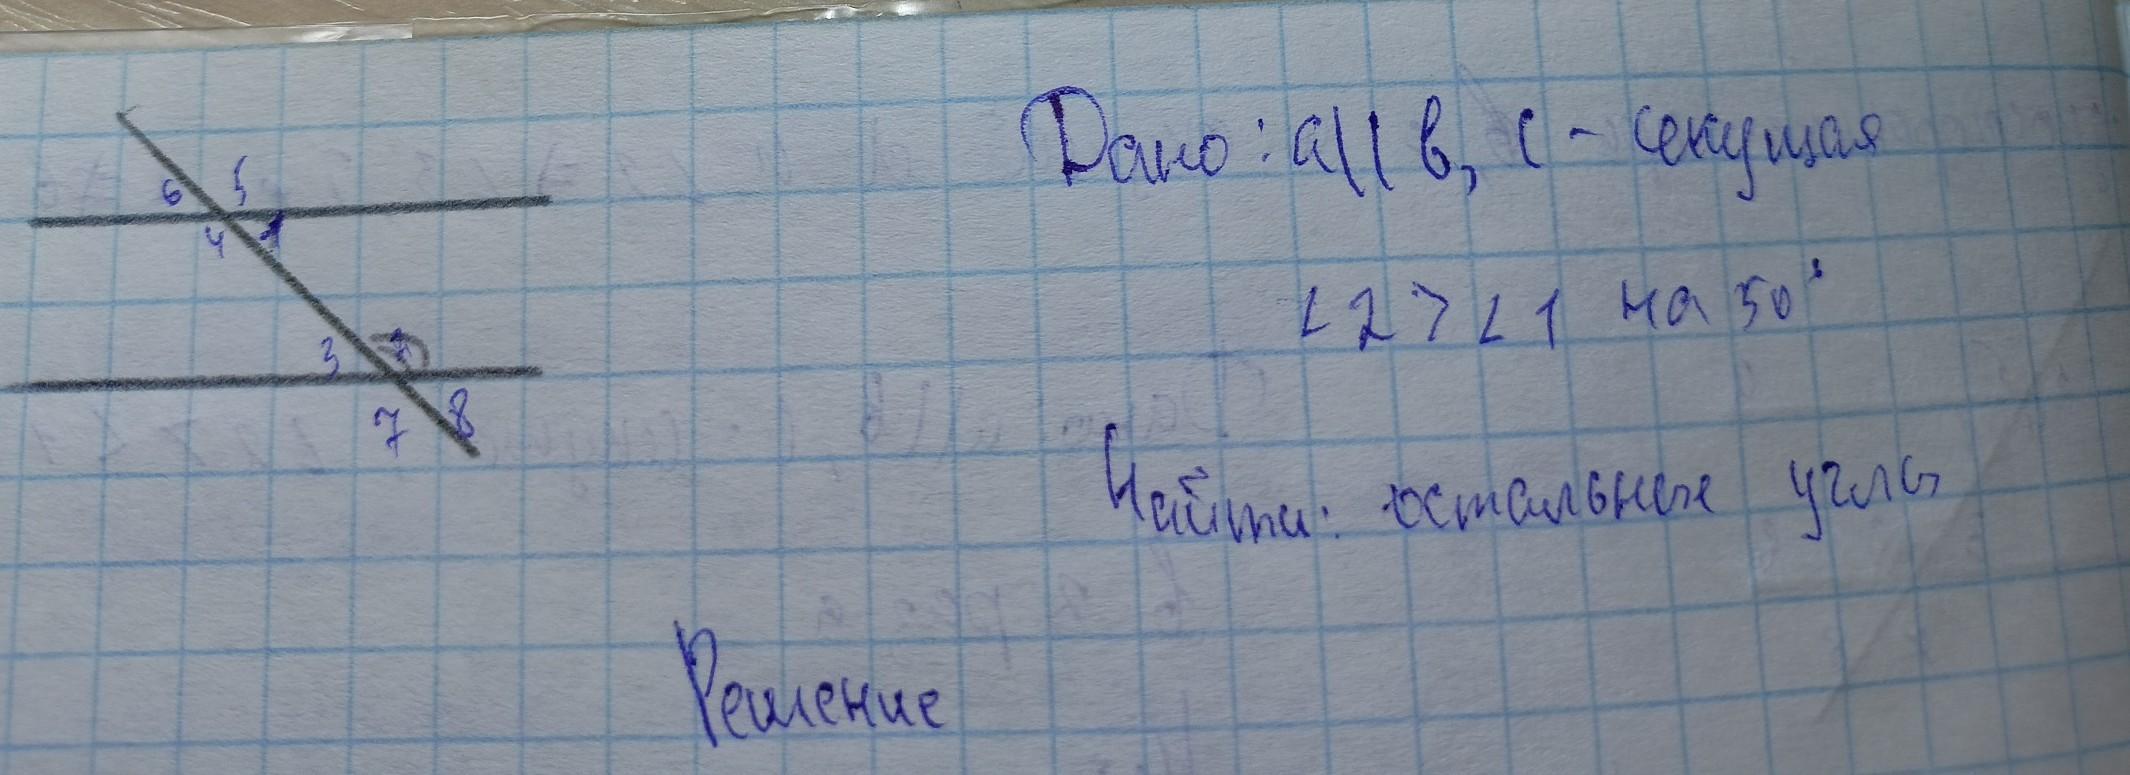 Дано: a || b, c - секущая
∠2 > ∠1 на 50°
Найти: остальные углы
6 5
4 1
3 2
7 8
Решение